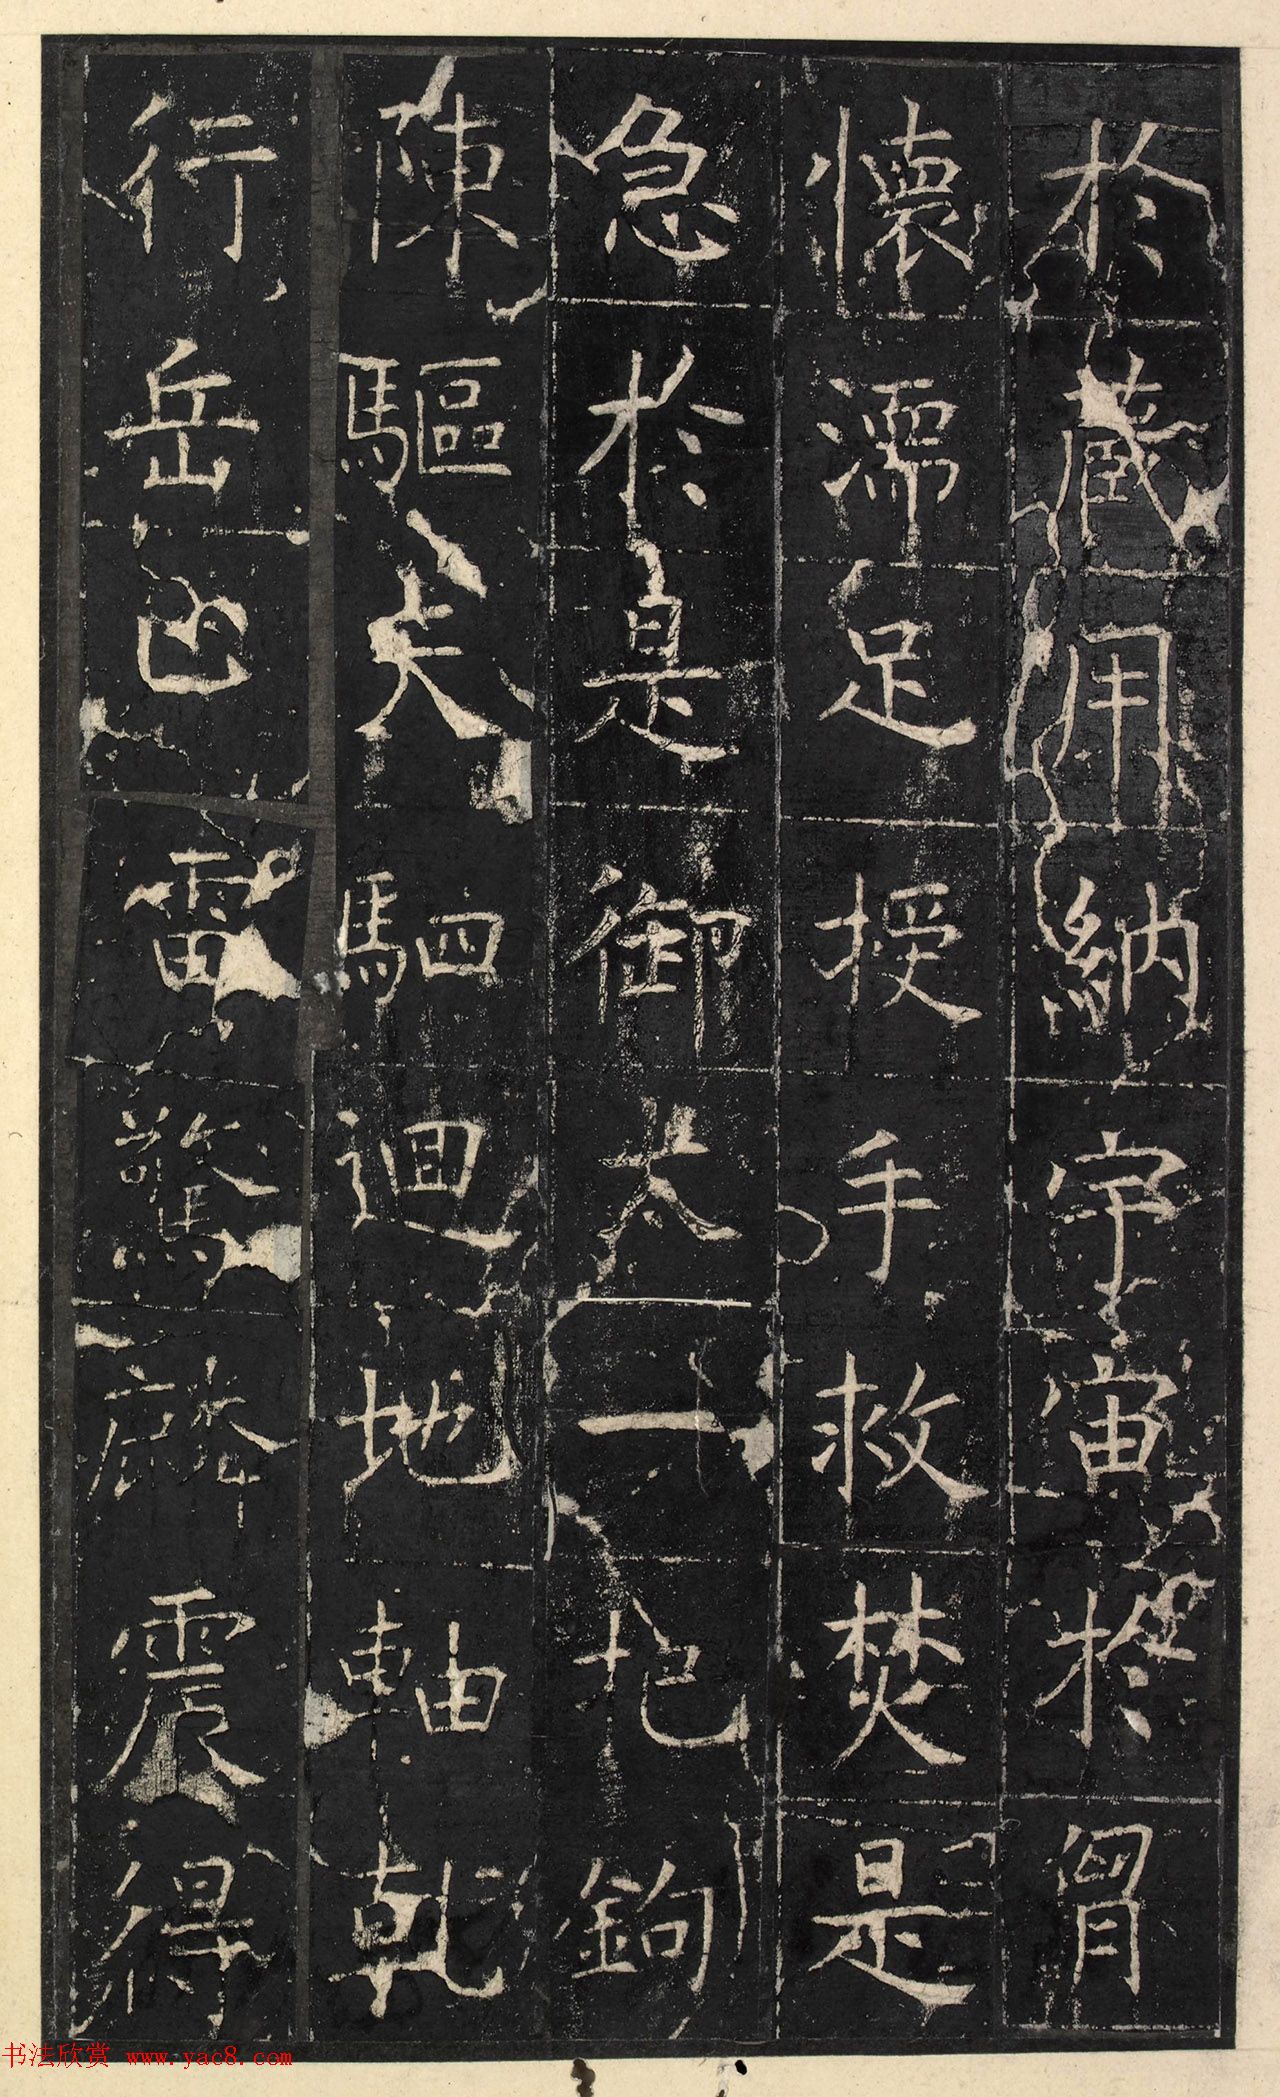 於藏用納宇宙於胷
懷濡足授手救焚是
急於是御太一把鉤
陳驅天駟迴地軸乾
行岳雷驚麟震得
书法欣赏 www.yac8.com